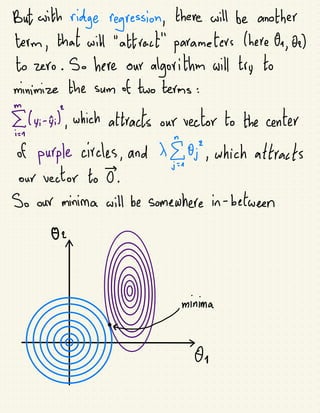 But with ridge regression, there will be another
term, that will "attract" parameters (here θ₁, θ₂)
to zero. So here our algorithm will try to
minimize the sum of two terms:
∑ᵢ₌₁ᵐ(yᵢ-ŷᵢ)², which attracts our vector to the center
of purple circles, and λ∑ⱼ₌₁ⁿ θⱼ², which attracts
our vector to 0⃗.
So our minima will be somewhere in-between
θ₂
minima
θ₁